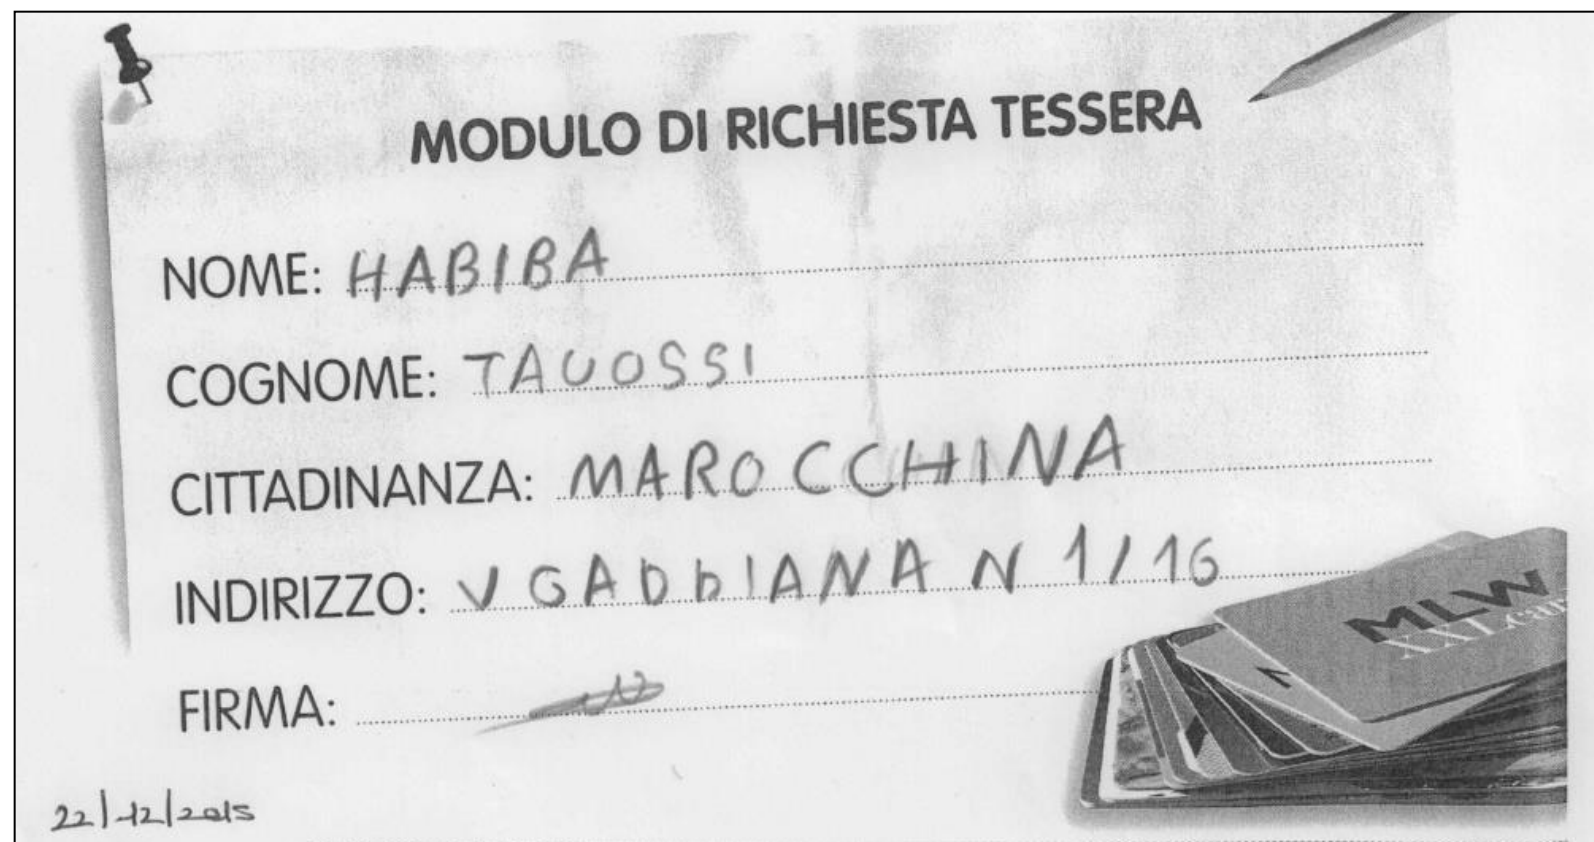 MODULO DI RICHIESTA TESSERA
NOME: HABIBA
COGNOME: TAUOSSI
CITTADINANZA: MAROCCHINA
INDIRIZZO: V GADDIANA N 1/16
FIRMA:
22/12/2015
MLW
XXL car